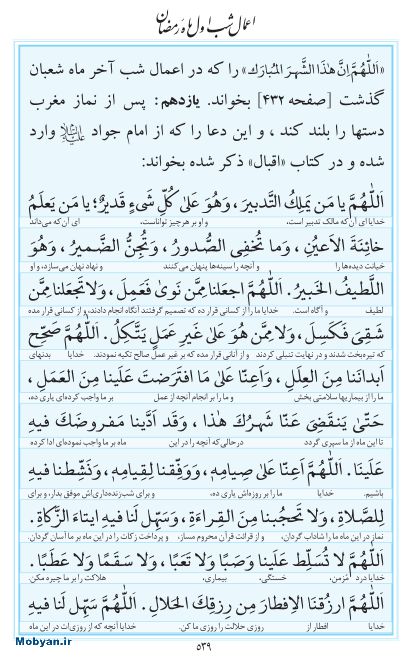 اعمال شب اول ماه رمضان
«اَللّٰهُمَّ اِنَّ هٰذَا الشَّهرَ المُبارَك» را که در اعمال شب آخر ماه شعبان
گذشت [صفحه ۴۳۲] بخواند. یازدهم: پس از نماز مغرب
دستها را بلند کند ، و این دعا را که از امام جواد علیه‌السلام وارد
شده و در کتاب «اقبال» ذکر شده بخواند:
اَللّٰهُمَّ يا مَن يَملِكُ التَّدبيرَ، وَهُوَ عَلىٰ كُلِّ شَیءٍ قَديرٌ؛ يا مَن يَعلَمُ
خدایا ای آن‌که مالک تدبیر است، و او بر هر چیز تواناست، ای آن‌که می‌داند
خائِنَةَ الاَعيُنِ، وَما تُخفِی الصُّدورُ، وَتُجِنُّ الضَّميرُ، وَهُوَ
خیانت دیده‌ها را و آنچه را سینه‌ها پنهان می‌کنند و نهاد نهان می‌سازد، و او
اللَّطيفُ الخَبيرُ. اَللّٰهُمَّ اجعَلنا مِمَّن نَوىٰ فَعَمِلَ، وَلا تَجعَلنا مِمَّن
لطیف و آگاه است. خدایا ما را از کسانی قرار ده که تصمیم گرفتند آنگاه انجام دادند، و از کسانی قرار مده
شَقِیَ فَكَسِلَ، وَلا مِمَّن هُوَ عَلىٰ غَيرِ عَمَلٍ يَتَّكِلُ. اَللّٰهُمَّ صَحِّح
که تیره‌بخت شدند و در نهایت تنبلی کردند و از آنانی قرار مده که بر غیر عمل صالح تکیه نمودند. خدایا بدنهای
اَبدانَنا مِنَ العِلَلِ، وَاَعِنّا عَلىٰ مَا افتَرَضتَ عَلَينا مِنَ العَمَلِ،
ما را از بیماریها سلامتی بخش و ما را بر انجام آنچه از عمل بر ما واجب کرده‌ای یاری ده،
حَتّىٰ يَنقَضِیَ عَنّا شَهرُكَ هٰذا، وَقَد اَدَّينا مَفروضَكَ فيهِ
تا این ماه از ما سپری گردد درحالی‌که آنچه را در این ماه بر ما واجب نموده‌ای ادا کرده
عَلَينا. اَللّٰهُمَّ اَعِنّا عَلىٰ صِيامِهِ، وَوَفِّقنا لِقِيامِهِ، وَنَشِّطنا فيهِ
باشیم. خدایا ما را بر روزه‌اش یاری ده، و برای شب‌زنده‌داری‌اش موفق بدار، و برای
لِلصَّلاةِ، وَلا تَحجُبنا مِنَ القِراءَةِ، وَسَهِّل لَنا فيهِ ايتاءَ الزَّكاةِ.
نماز در این ماه ما را شاداب گردان، و از قرائت قرآن محروم مساز، و پرداخت زکات را در این ماه بر ما آسان گردان.
اَللّٰهُمَّ لا تُسَلِّط عَلَينا وَصَبًا وَلا تَعَبًا، وَلا سَقَمًا وَلا عَطَبًا.
خدایا درد مُزمن، خستگی، بیماری، هلاکت را بر ما چیره مکن.
اَللّٰهُمَّ ارزُقنَا الاِفطارَ مِن رِزقِكَ الحَلالِ. اَللّٰهُمَّ سَهِّل لَنا فيهِ
خدایا افطار از روزی حلالت را روزی ما کن. خدایا آنچه که از روزی‌ات در این ماه
۵۳۹
Mobyan.ir